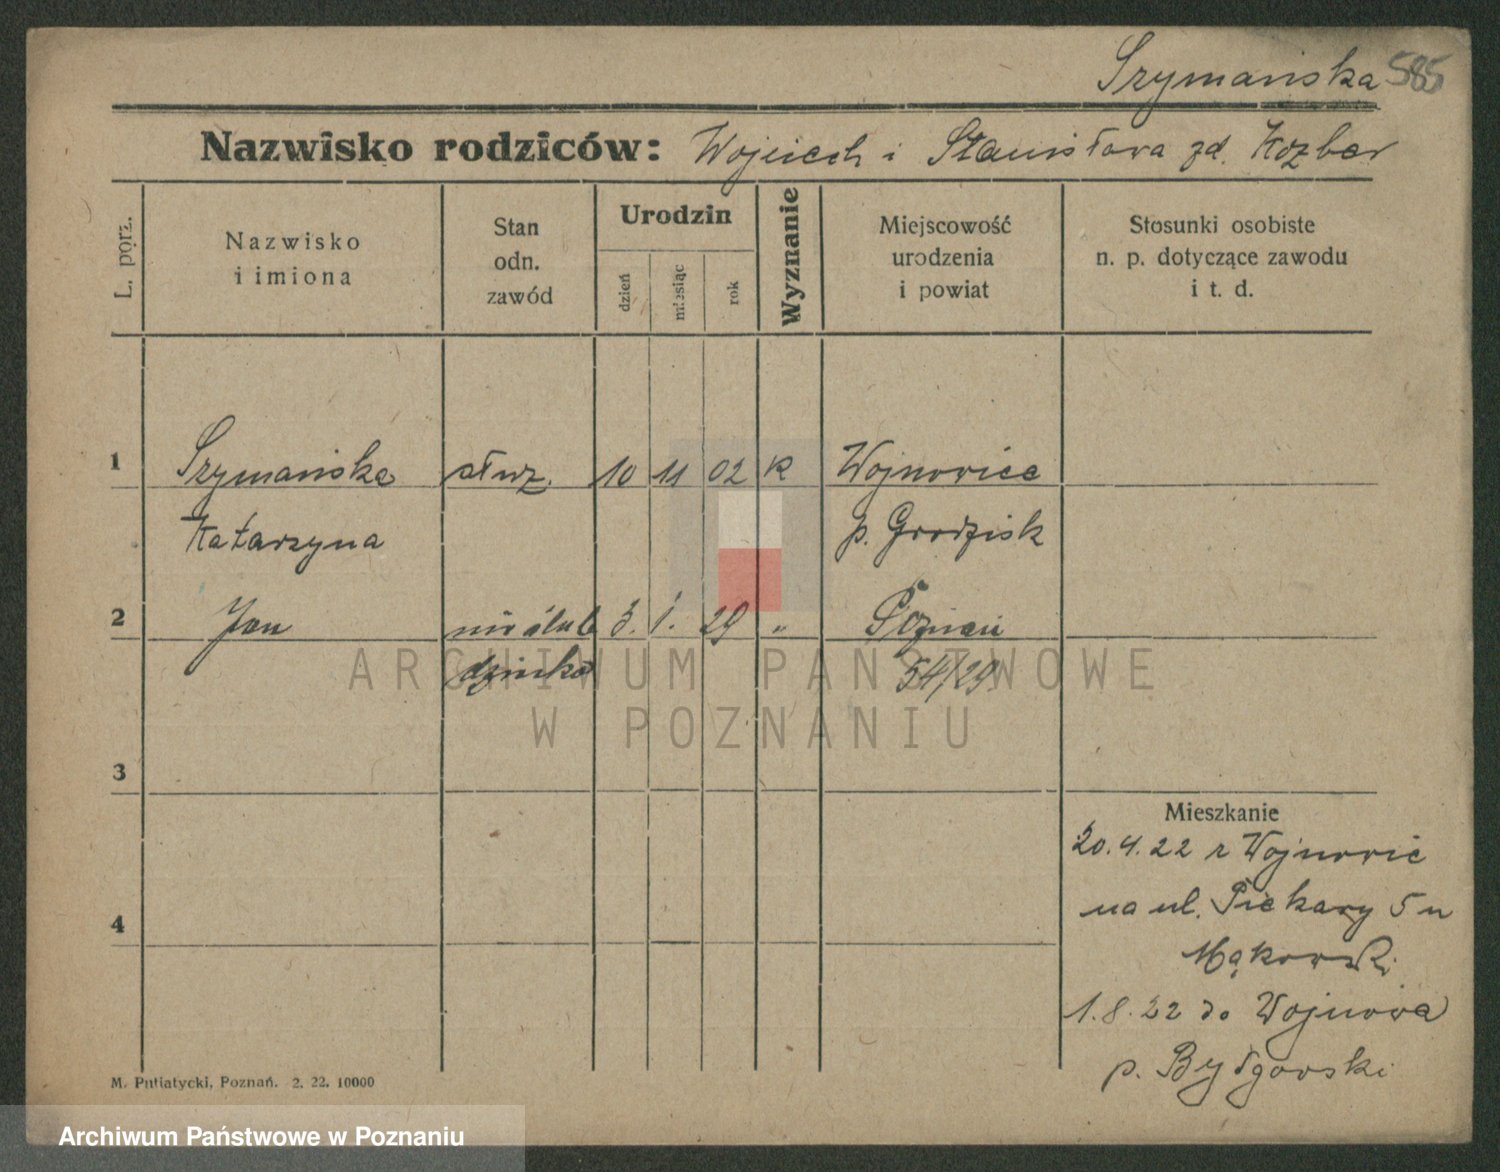 Szymańska 585
Nazwisko rodziców: Wojciech i Stanisława zd. Kozber
L. porz.
Nazwisko
i imiona
Stan
odn.
zawód
Urodzin
dzień
miesiąc
rok
Wyznanie
Miejscowość
urodzenia
i powiat
Stosunki osobiste
n. p. dotyczące zawodu
i t. d.
1 Szymańska służ. 10 11 02 K Wojnowice
Katarzyna p. Grodzisk
2 Jan nieślub 3. 1. 29 " Poznań
dziecko 54/29.
ARCHIWUM PAŃSTWOWE
W POZNANIU
3
Mieszkanie
20.4.22 z Wojnowic
4 na ul. Piekary 5 u
Mąkowski
1.8.22 do Wojnowa
p. Bydgoski
M. Putiatycki, Poznań. 2. 22. 10000
Archiwum Państwowe w Poznaniu